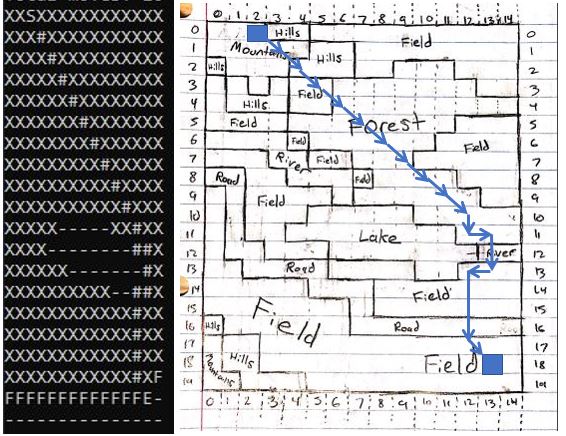 XXSXXXXXXXXXXXX
XXX#XXXXXXXXXXX
XXXX#XXXXXXXXXX
XXXXX#XXXXXXXXX
XXXXXX#XXXXXXXX
XXXXXXX#XXXXXXX
XXXXXXXX#XXXXXX
XXXXXXXXX#XXXXX
XXXXXXXXXX#XXXX
XXXXXXXXXXX#XXX
XXXXX-----XX#XX
XXXX--------##X
XXXXXX-------#X
XXXXXXXXXX--##X
XXXXXXXXXXXX#XX
XXXXXXXXXXXX#XX
XXXXXXXXXXXX#XX
XXXXXXXXXXXX#XF
FFFFFFFFFFFFFE-
---------------
0 1 2 3 4 5 6 7 8 9 10 11 12 13 14
0 Hills Field 0
1 Mountains Hills 1
2 Hills 2
3 Field 3
4 Hills 4
5 Field Forest 5
6 Field Field 6
7 River Field 7
8 Road Field 8
9 Field 9
10 10
11 Lake 11
12 River 12
13 Road 13
14 Field 14
15 Field 15
16 Hills Road 16
17 Hills 17
18 Mountains Field 18
19 19
0 1 2 3 4 5 6 7 8 9 10 11 12 13 14